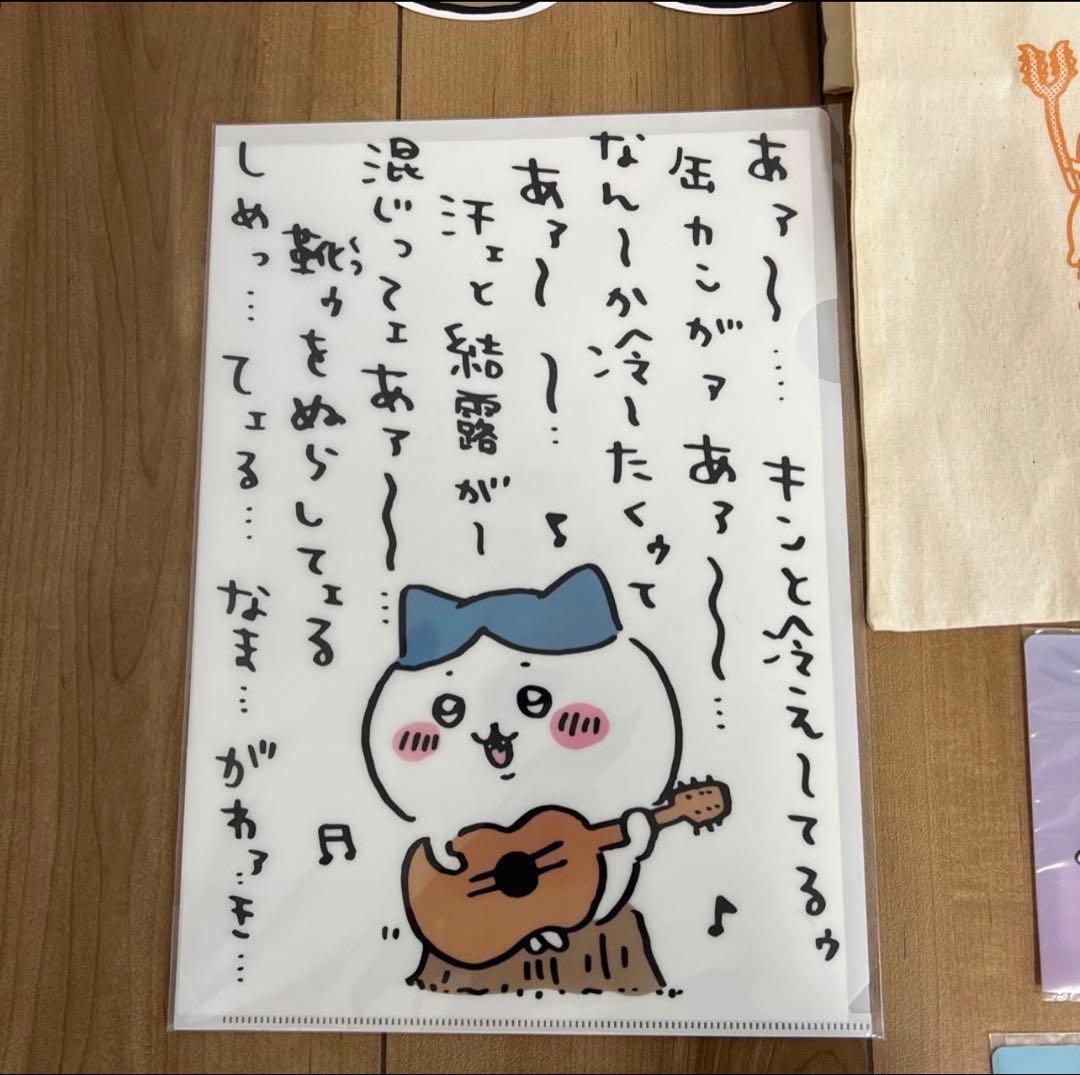 あァ〜…‥ キンと冷え〜てるゥ
缶カンがァ あァ〜〜…
なん〜か冷〜たくゥて
あァ〜 〜…
汗ェと結露がー
混じってェ あァ〜…
靴ゥをぬらしてェる
しめっ… てェる… なま… がわァ‥き…
くつ